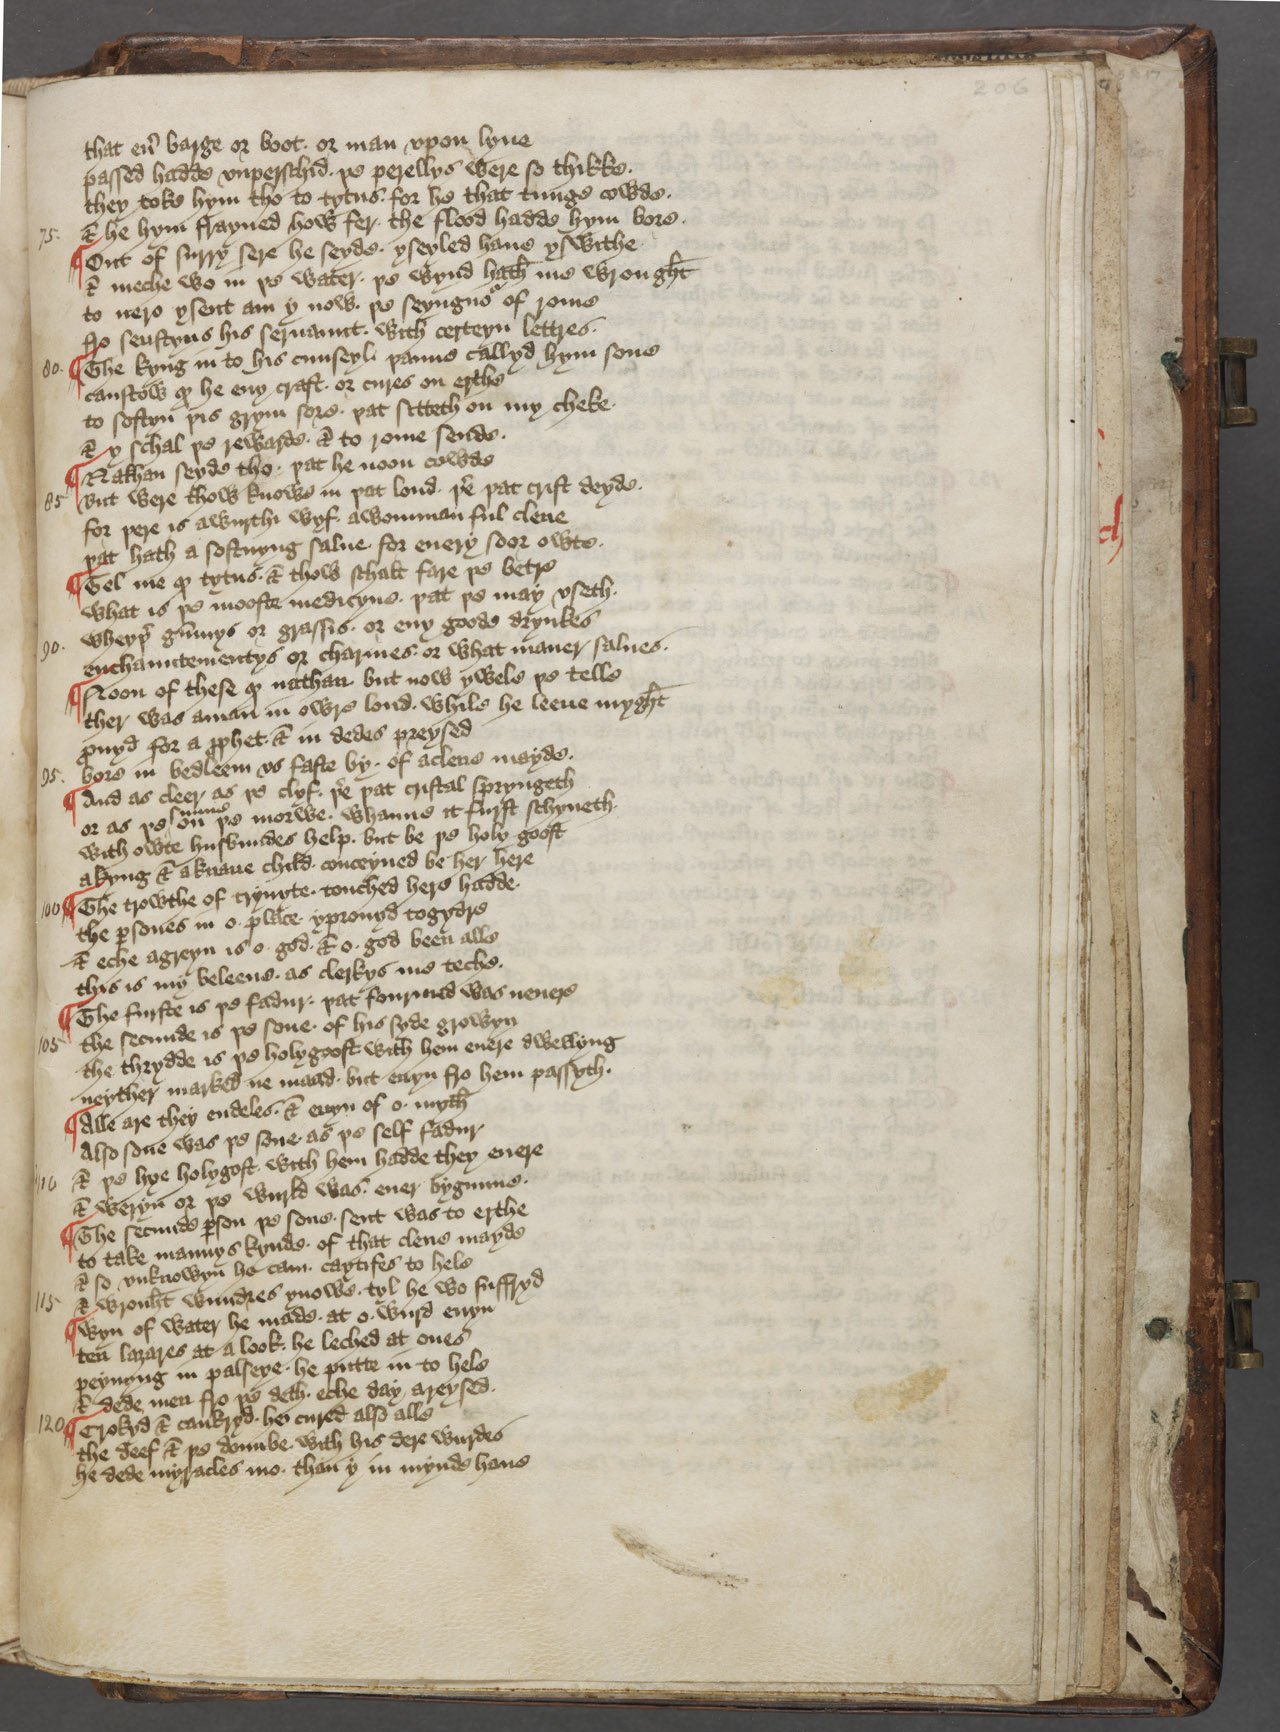 206
that eu̾ barge or boot · or man vpon lyue
passed hadde vnperschid · þe perellys were so thikke ·
they toke hym tho to tytus · for he that tunge cowde ·
75 · & he hym frayned how fer · the flood hadde hym bore ·
¶ Out of surry sere he seyde · yseyled haue yswithe
& meche wo in þe water · þe wynd hath me wrought
to nero ysent am y now · þe seyngnor of rome
fro senstyus his seruaunt · with certeyn lettres ·
80 · ¶ The kyng in to his cunseyl · panne callyd hym sone
canstow qͦ he eny craft · or cures on erthe
to softyn þis grym sore · þat sitteth on my cheke ·
& y schal þe rewarde · & to rome sende ·
¶ Nathan seyde tho · þat he noon cowde
85 but were thow knowe in þat lond · þͤ þat crist deyde ·
for þere is awurthi wyf · awomman ful clene
þat hath a softnyng salue · for euery soor owte ·
¶ Tel me qͦ tytus · & thow schalt fare þe betre
what is þe mooste medicyne · þat þe may vseth ·
90 · wheyþͬ gūmys or grassis · or eny goode drynkes
enchauntementys or charmes · or what maner salues ·
¶ Noon of these qͦ nathan · but now ywele þe telle
ther was aman in owre lond · while he leeue myght
prouyd for a ꝓphet · & in dedes preysed
95 · bore in bedleem vs faste by · of aclene mayde ·
¶ And as cleer as þe clyf · þͤ þat cristal spryngeth
or as þe sunne on þe morwe · whanne it furst schyneth ·
with owte husbundes help · but be þe holy goost
akyng & aknaue child · conceyued be her here
100 ¶ The trowthe of trynyte · touched here hadde ·
the ꝑsones in o · place · yprouyd togydre
& eche agreyn is o · god · & o · god been alle
this is my beleeue · as clerkys me teche ·
¶ The furste is þe fadur · þat fourmed was neuere
105 the secunde is þe sone · of his syde growyn
the thrydde is þe holygoost with hem euere dwellyng
neyther marked ne maad · but euyn fro hem passyth ·
¶ Alle are they endeles · & euyn of o · myth
Also sone was þe sone · as þe self fadur
110 & þe hye holygost · with hem hadde they euere
& weryn or þe wurld was · euer bygunne ·
¶ The secunde ꝑson þe sone · sent was to erthe
to take mannys kynde · of that clene mayde
& so vnknowyn he cam · caytifes to hele
115 & wrouht wundres ynowe · tyl he wo suffryd
¶ Wyn of water he made · at o · wurd euyn
ten lazares at a look · he leched at ones
peynyng in palseye · he putte in to hele
& dede men fro þe deth · eche day areysed ·
120 ¶ Crokyd & cankryd · he cured also alle
the deef & þe doumbe · with his dere wurdes
he dede myracles mo · than y in mynde haue